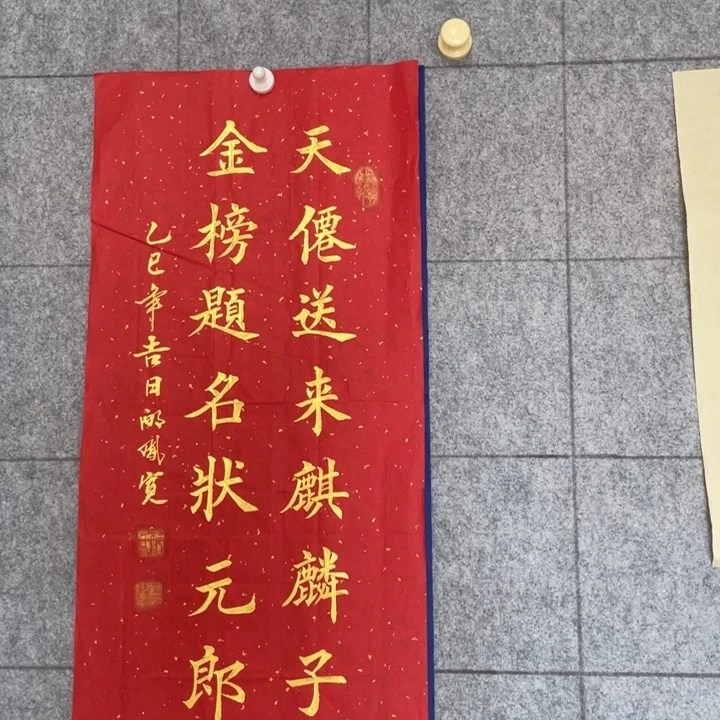 天僊送来麒麟子
金榜題名狀元郎
乙巳年吉日